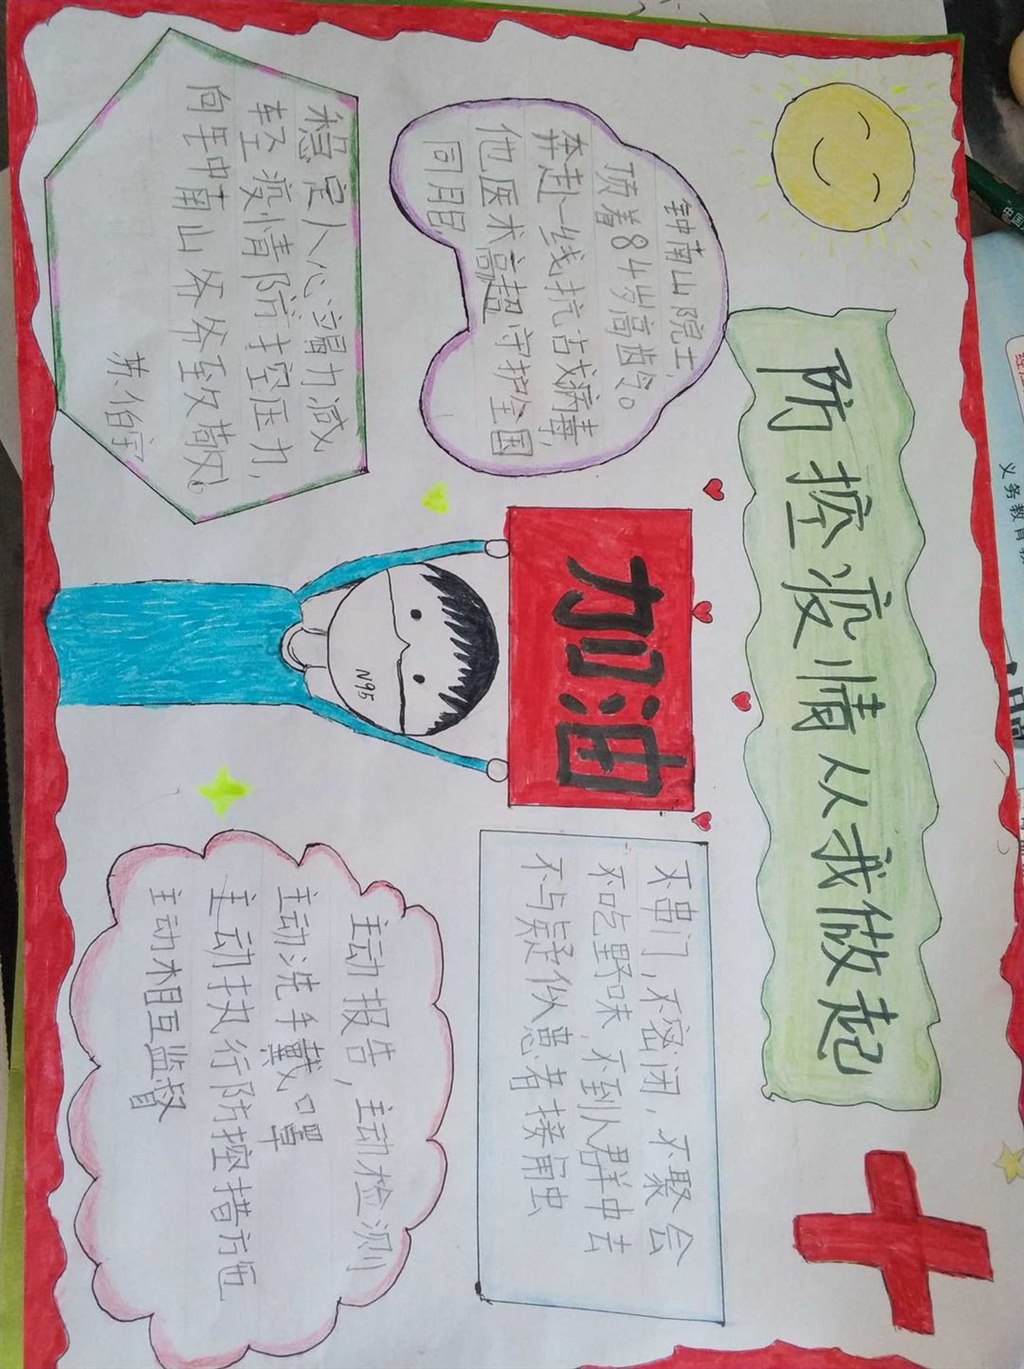 防控疫情从我做起
钟南山院士,
顶着84岁高龄。
奔赴一线抗击病毒,
他医术高超守护全国
同胞
稳定人心竭力减
轻疫情防控压力,
向钟南山爷爷致敬!
苏伯宇
加油
N95
不出门,不密闭,不聚会
不吃野味,不到人群中去
不与疑似患者接触
主动报告,主动检测
主动洗手戴口罩
主动执行防控措施
主动相互监督
义务教育
中国